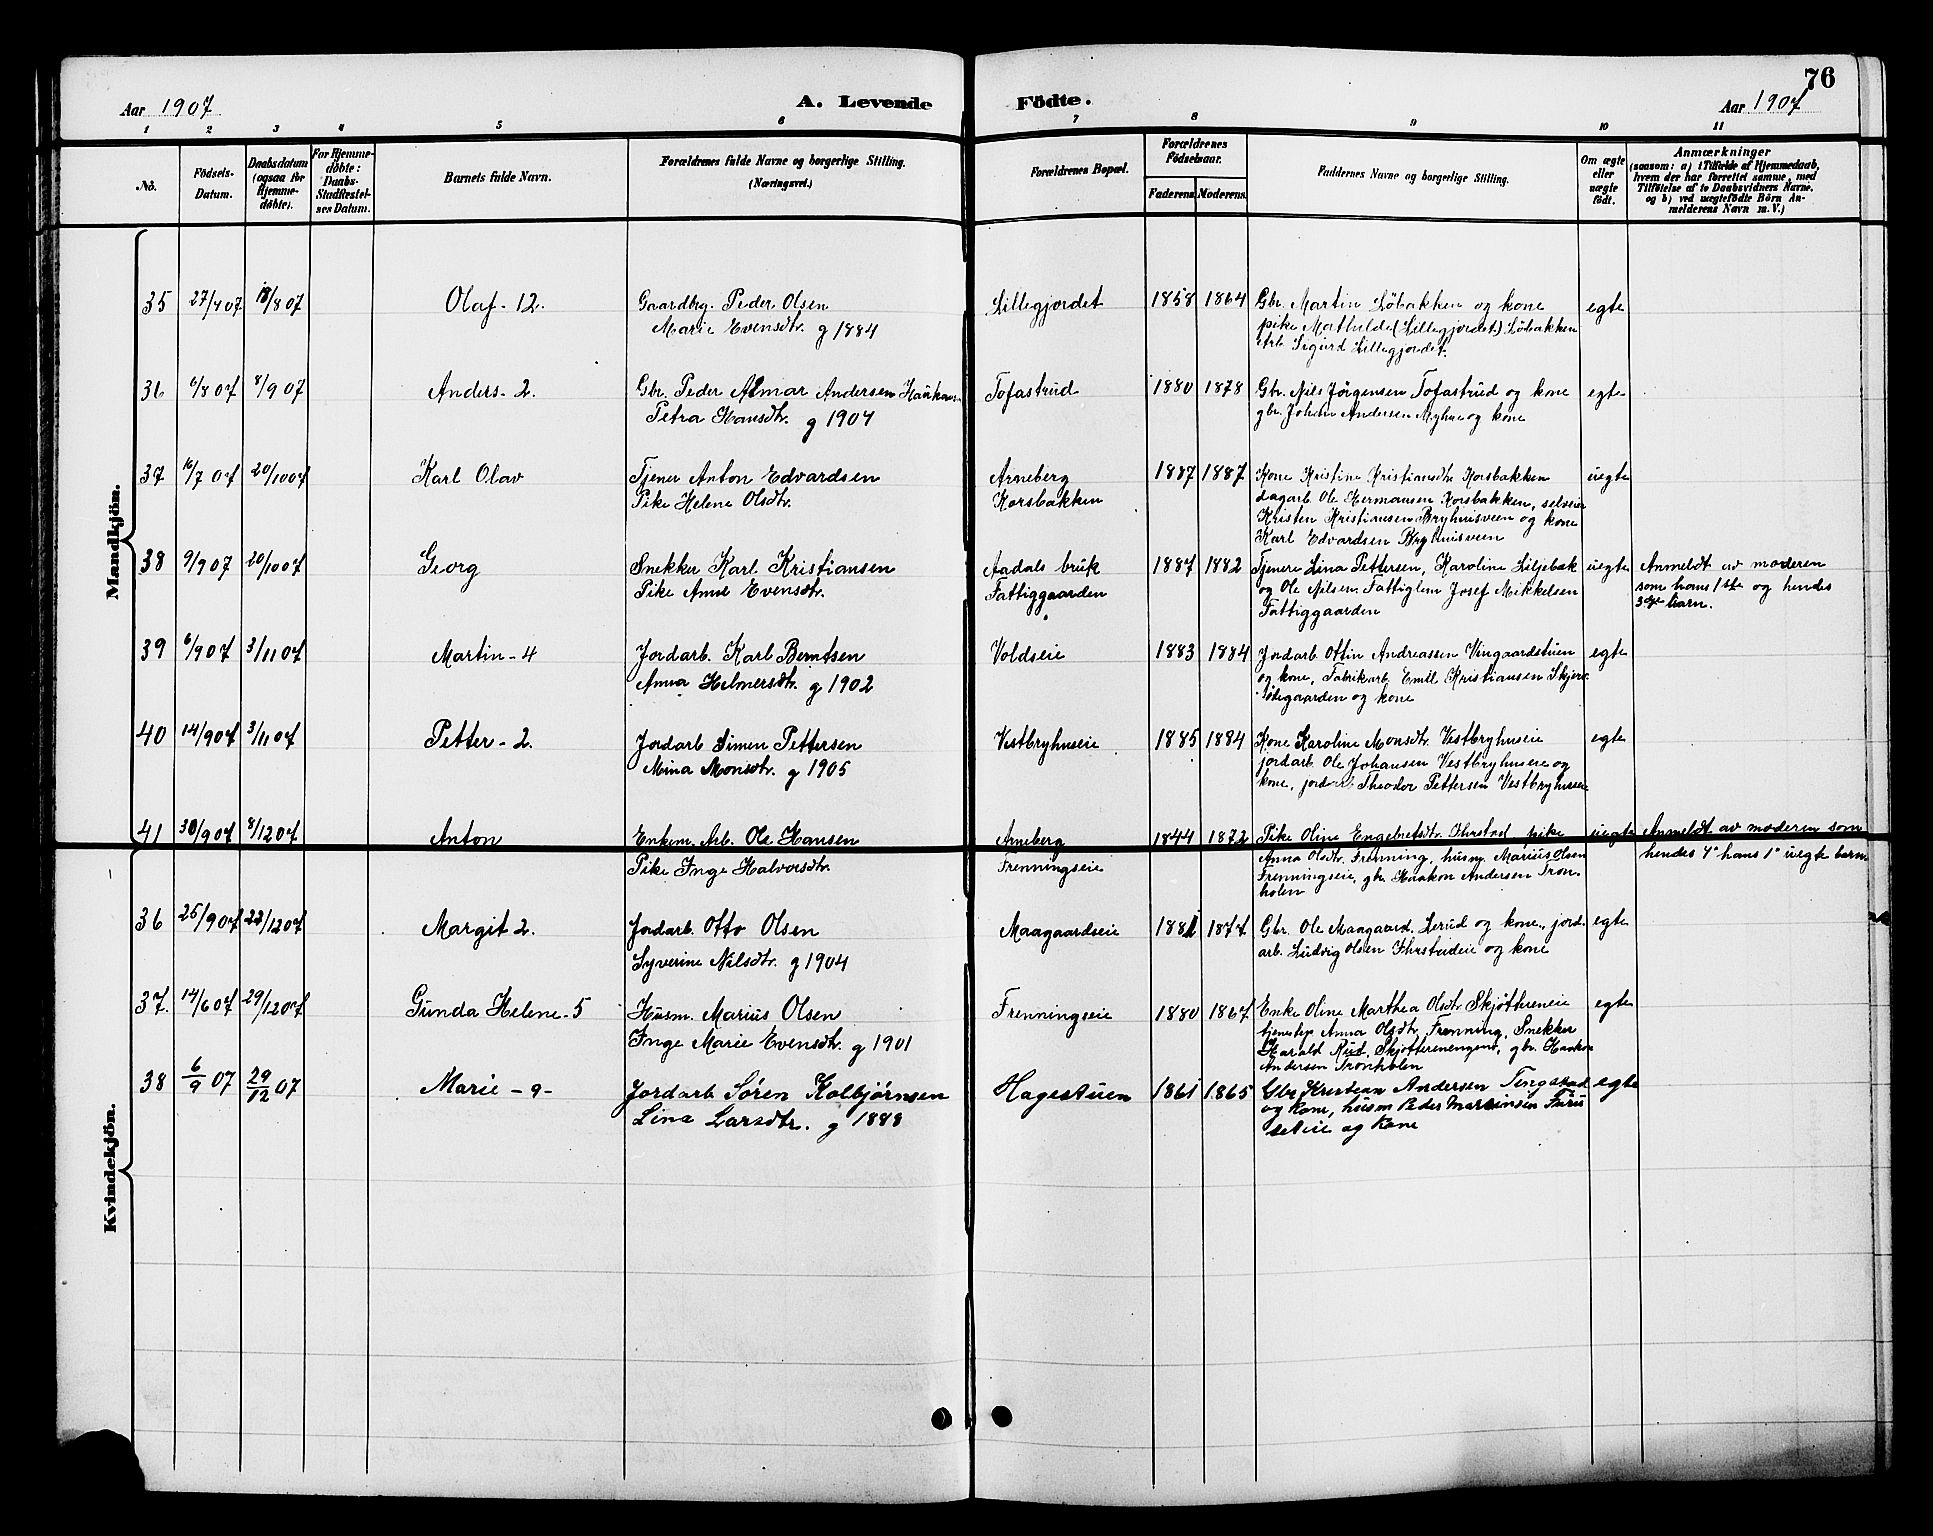 76
Aar 1907
A. Levende Födte.
Aar 1907
1 2 3 4 5 6 7 8 9 10 11
No.
Födsels-Datum.
Daabsdatum (ogsaa for Hjemme-döbte).
For Hjemme-döbte: Daabs-Stadfæstel-ses Datum.
Barnets fulde Navn.
Forældrenes fulde Navne og borgerlige Stilling. (Næringsvei.)
Forældrenes Bopæl.
Forældrenes Födselsaar.
Faderens Moderens
Faddernes Navne og borgerlige Stilling.
Om ægte eller uægte födt.
Anmærkninger
(saasom: a) i Tilfælde af Hjemmedaab, hvem der har forrettet samme, med Tilföielse af to Daabsvidners Navne, og b) ved uægtefödte Börn An-melderens Navn m. V.)
Mandkjön.
35 27/4 07 /8 07 Olaf - 12. Gaardbrg. Peder Olsen Lillegjordet 1858 1864 Gbr. Martin Löbakken og kone egte
Marie Evensdtr. g 1884 pike Mathilde (Lillegjordet) Löbakken
Arb. Sigurd Lillegjordet.
36 6/8 07 8/9 07 Anders - 2. Gbr. Peder Almar Andersen Tofastrud 1880 1878 Gbr. Nils Jörgensen Tofastrud og kone egte
Petra Hansdtr. g 1904 gbr. Johan Andersen og kone
37 16/7 07 20/10 07 Karl Olav Tjener Anton Edvardsen Arneberg 1887 1887 Kone Kristine Kristiansdtr Korsbakken uegte
Pike Helene Olsdtr. Korsbakken dagarb. Ole Hermansen Korsbakken, selveier
Kristen Kristiansen Bryhnisveen og kone
Karl Edvardsen Bryhnisveen
38 9/9 07 20/10 07 Georg Snekker Karl Kristiansen Aadals bruk 1887 1882 Tjenere Lina Pettersen, Karoline Liljebak uegte Anmeldt av moderen
Pike Anne Evensdtr. Fattiggaarden og Ole Nilsen. Fattiglem Josef Mikkelsen som hans 1ste og hendes
Fattiggaarden 3dje barn.
39 6/9 07 3/11 07 Martin - 4 Jordarb. Karl Berntsen Voldseie 1883 1884 Jordarb. Ottin Andreassen Vingaardstuen egte
Anna Helmersdtr. g 1902 og kone, Fabrikarb. Emil Kristiansen
ödegaarden og kone
40 14/9 07 3/11 07 Petter - 2. Jordarb Simen Pettersen Vestbryhnseie 1885 1884 Kone Karoline Monsdtr. Vestbryhnseie egte
Mina Monsdtr. g 1905 jordarb. Ole Johansen Vestbryhnseie og
kone, jordarb Theodor Pettersen Vestbryhnseie
41 30/9 07 8/12 07 Anton Enkem. Arb. Ole Hansen Arneberg 1844 1872 Pike Oline Engebretsdtr. pike uegte Anmeldt av moderen som
Pike Inge Halvorsdtr. Frenningseie Anna Olsdtr. Frenning, husm. Marius Olsen hendes 4° hans 1° uegte barn
Frenningseie, gbr. Haakon Andersen Tron-
holen
Kvindekjön.
36 25/9 07 22/12 07 Margit 2. Jordarb. Otto Olsen Maagaardseie 1881 1877 Gbr. Ole Maagaard. Lerud og kone, jord- egte
Syverine Nilsdtr. g 1904 arb. Ludvig Olsen og kone
37. 14/6 07 29/12 07 Gunda Helene - 5 Husm. Marius Olsen Frenningseie 1880 1867 Enke Oline Marthea Olsdtr Skjöttereneie egte
Inge Marie Evensdtr. g 1901 tjenestep. Anna Olsdtr. Frenning, Snekker
Harald Rud, Skjötterenengene, gbr. Haakon
Andersen Tronholen
38 6/9 07 29/12 07 Marie - 9 - Jordarb Sören Kolbjörnsen Hagestuen 1861 1865 Gbr Kristian Andersen Tingstad egte
Lina Larsdtr. g 1888 og kone, husm Peder Martinsen Furu
seteie og kone